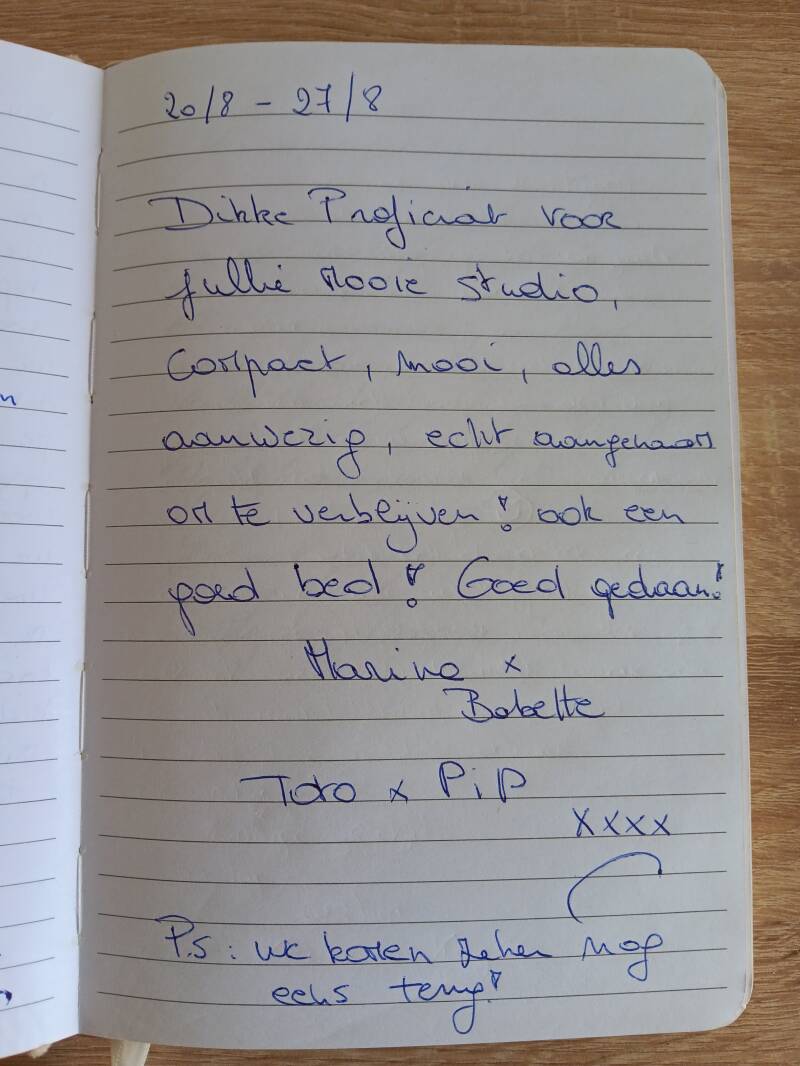 20/8 - 27/8
Dikke Proficiat voor
jullie mooie studio,
Compact, mooi, alles
aanwezig, echt aangenaam
om te verblijven! ook een
goed bed! Goed gedaan!
Marine x
Babette
Toro x Pip
xxxx
P.S: we komen zeker nog
eens terug!